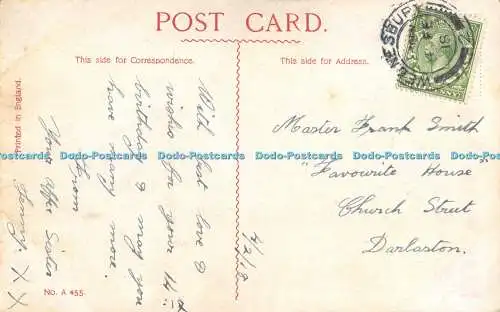 POST CARD.
This side for Correspondence.
This side for Address.
Printed in England.
With best love &
wishes for your 14th
birthday & may you
have many more.
From
Your Affec Sister
Fanny. X X
X
4/2/18
Master Frank Smith
"Favourite House"
Church Street
Darlaston.
No. A 455.
WEDNESBURY
Dodo-Postcards Dodo-Postcards Dodo-Postcards Dodo-Postcards Dodo-Postcards